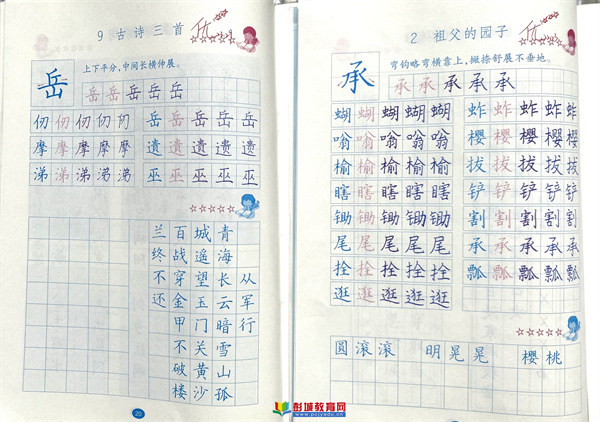 9 古诗三首
优
上下平分,中间长横伸展。
岳
岳 岳 岳 岳 岳
仞 仞 仞 仞 仞 岳 岳 岳 岳 岳
摩 摩 摩 摩 摩 遗 遗 遗 遗 遗
涕 涕 涕 涕 涕 巫 巫 巫 巫 巫
从军行
青海长云暗雪山
孤城遥望玉门关
黄沙百战穿金甲
不破楼兰终不还
20
2 祖父的园子
优
弯钩略弯横靠上,撇捺舒展不垂地。
承
承 承 承 承 承
蝴 蝴 蝴 蝴 蝴 蚱 蚱 蚱 蚱 蚱
嗡 嗡 嗡 嗡 嗡 樱 樱 樱 樱 樱
榆 榆 榆 榆 榆 拔 拔 拔 拔 拔
瞎 瞎 瞎 瞎 瞎 铲 铲 铲 铲 铲
锄 锄 锄 锄 锄 割 割 割 割 割
尾 尾 尾 尾 尾 承 承 承 承 承
拴 拴 拴 拴 拴 瓢 瓢 瓢 瓢 瓢
逛 逛 逛 逛 逛
圆 滚 滚 明 晃 晃 樱 桃
彭城教育网
www.pcjyedu.cn